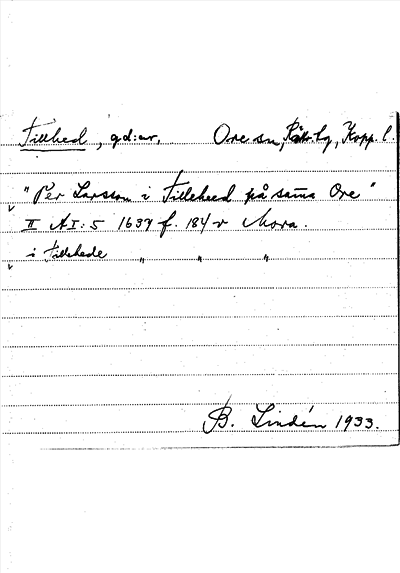 Tillhed, gd:ar, Ore sn, Rättv. tg, Kopp. l.
"Per Larsson i Tillehed på sama Ore"
II AI:5 1639 f. 184 v Mora.
i Tillehede " " "
B. Lindén 1933.